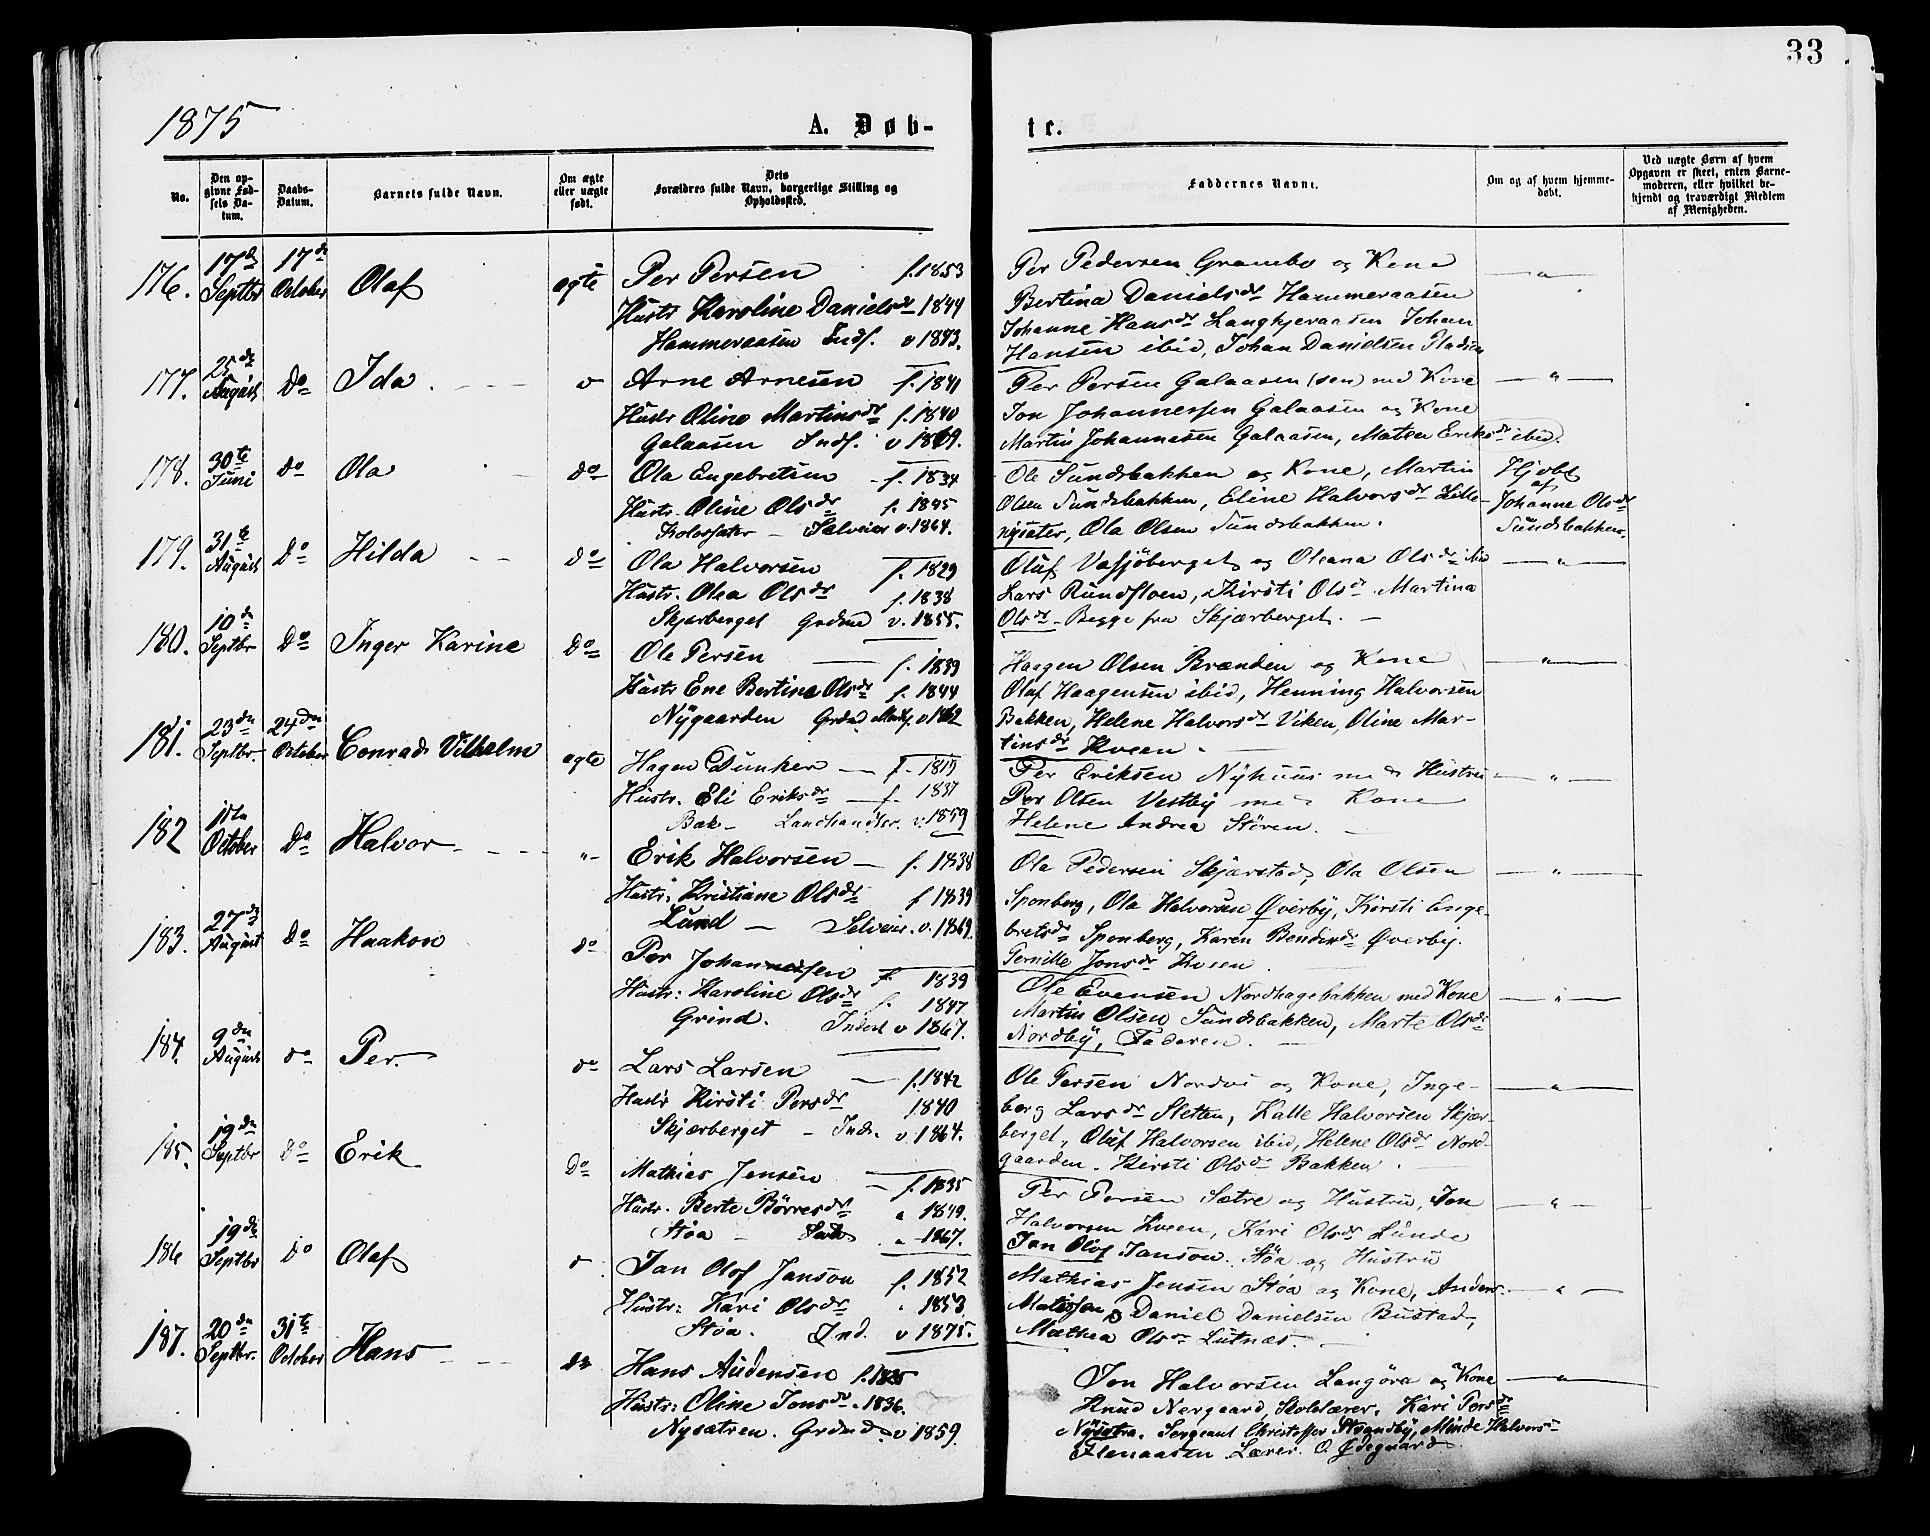 33
1875
A. Døb-
te.
No.
Den op-
givne Fød-
sels Da-
tum.
Daabs-
Datum.
Barnets fulde Navn.
Om ægte
eller uægte
født.
Dets
Forældres fulde Navn, borgerlige Stilling og
Opholdssted.
Faddernes Navne.
Om og af hvem hjemme-
døbt.
Ved uægte Børn af hvem
Opgaven er skeet, enten Barne-
moderen, eller hvilket be-
kjendt og troværdigt Medlem
af Menigheden.
176. 17de Septbr 17de October Olaf ægte
Per Persen f. 1853
Hustr Karoline Danielsdr 1844
Hammeraasen Inds. v 1893.
Per Pedersen Grambo og Kone
Bertina Danielsdr Hammeraasen
Johanne Hansdr Langkjeraasen Johan
Hansen ibid, Johan Danielsen Pladsen
177. 25de August Do Ida.
Arne Arnesen f. 1841
Hustr Oline Martinsdr f. 1840
Galaasen Inds. v 1869.
Per Persen Galaasen (sen) med Kone
Jon Johannessen Galaasen og Kone
Martin Johannesen Galaasen, Matea Eriksdr ibid.
178. 30te Juni do Ola do
Ola Engebretsen f. 1834
Hustr. Oline Olsdr f. 1845
Kolossæter Selveier v. 1864.
Ole Sundsbakken og Kone, Martin
Olsen Sundsbakken, Eline Halvorsdr Lille-
nysæter, Ola Olsen Sundsbakken.
Hjdbt
af
Johanne Olsdr
Sundsbakken.
179. 31te August Do Hilda do
Ola Halvorsen f. 1829
Hustr. Olea Olsdr f. 1838
Skjærberget Grdmd v. 1855.
Oluf Vasjöberget og Oleana Olsdr ibid
Lars Rundfloen, Kirsti Olsdr Martina
Olsdr Begge fra Skjærberget.
180. 10de Septbr Do Inger Karine Do
Ole Persen f. 1839
Hustr Ene Bertine Olsdr f. 1844
Nygaarden Grdmd v 1862
Haagen Olsen Brænden og Kone
Oluf Haagensen ibid, Henning Halvorsen
Bakken, Helene Halvorsdr Viken, Oline Mar-
tinsdr Kveen.
181. 23de Septbr. 24de October Conrad Vilhelm ægte
Hagen Dunker f. 1819
Hustr. Eli Eriksdr f. 1837
Bak Landhandler. v. 1859
Per Eriksen Nyhuus med Hustru
Per Olsen Vestby med Kone
Helene Andrea Stören.
182 October Do Halvor
Erik Halvorsen f. 1838
Hustr: Kristiane Olsdr f 1839
Lund Selveier. v. 1869.
Ola Pedersen Skjærstad, Ola Olsen
Sponberg, Ola Halvorsen Øverby, Kirsti Enge-
bretsdr Sponberg, Karen Bendixdr Øverby.
Pernille Jonsdr Kveen.
183. 27de August Do Haakon do
Per Johannessen f. 1839
Hustr: Karoline Olsdr f. 1847
Grind. Inderst v 1867.
Ole Evensen Nordhagebakken med Kone
Martin Olsen Sundsbakken, Marte Olsdr
Nordby, Faderen.
184. 9de August do Per. do
Lars Larsen f. 1842
Hustr Kirsti Persdr 1840
Skjærberget Inds. v. 1864.
Ole Persen Nordvi og Kone, Inge-
borg Larsdr Sletten, Kalle Halvorsen Skjær-
berget, Oluf Halvorsen ibid, Helene Olsdr Nord-
gaarden. Kirsti Olsdr Bakken.
185. 19de Septbr Do Erik Do
Mathias Jensen f. 1835
Hustr. Berte Börresdr 1849.
Støa 1867.
Per Persen Sætre og Hustru, Jon
Halvorsen Kveen, Kari Olsdr Lunde
Jan Olof Janson. Støa og Hustru
186 19de Septbr do Olaf
Jan Olof Janson f. 1852
Hustr: Kari Olsdr 1853
Støa. Ind. v 1875.
Mathias Jensen Støa og Kone, Anders
Matissen Daniel Danielsen Bustad,
Mathea Olsdr Lutnæs.
187. 20de Septbr. 31te October Hans do
Hans Audensen f. 1835
Hustr: Oline Jonsdr 1836.
Nysætren. Grdmd v 1859.
Jon Halvorsen Langöra og Kone
Knud Nergaard, Skolelærer. Kari Persdr
Nysætra. Sergeant Christoffer Strandby, Minde Halvorsdr
Flenaasen Lærer O. Ødegaard